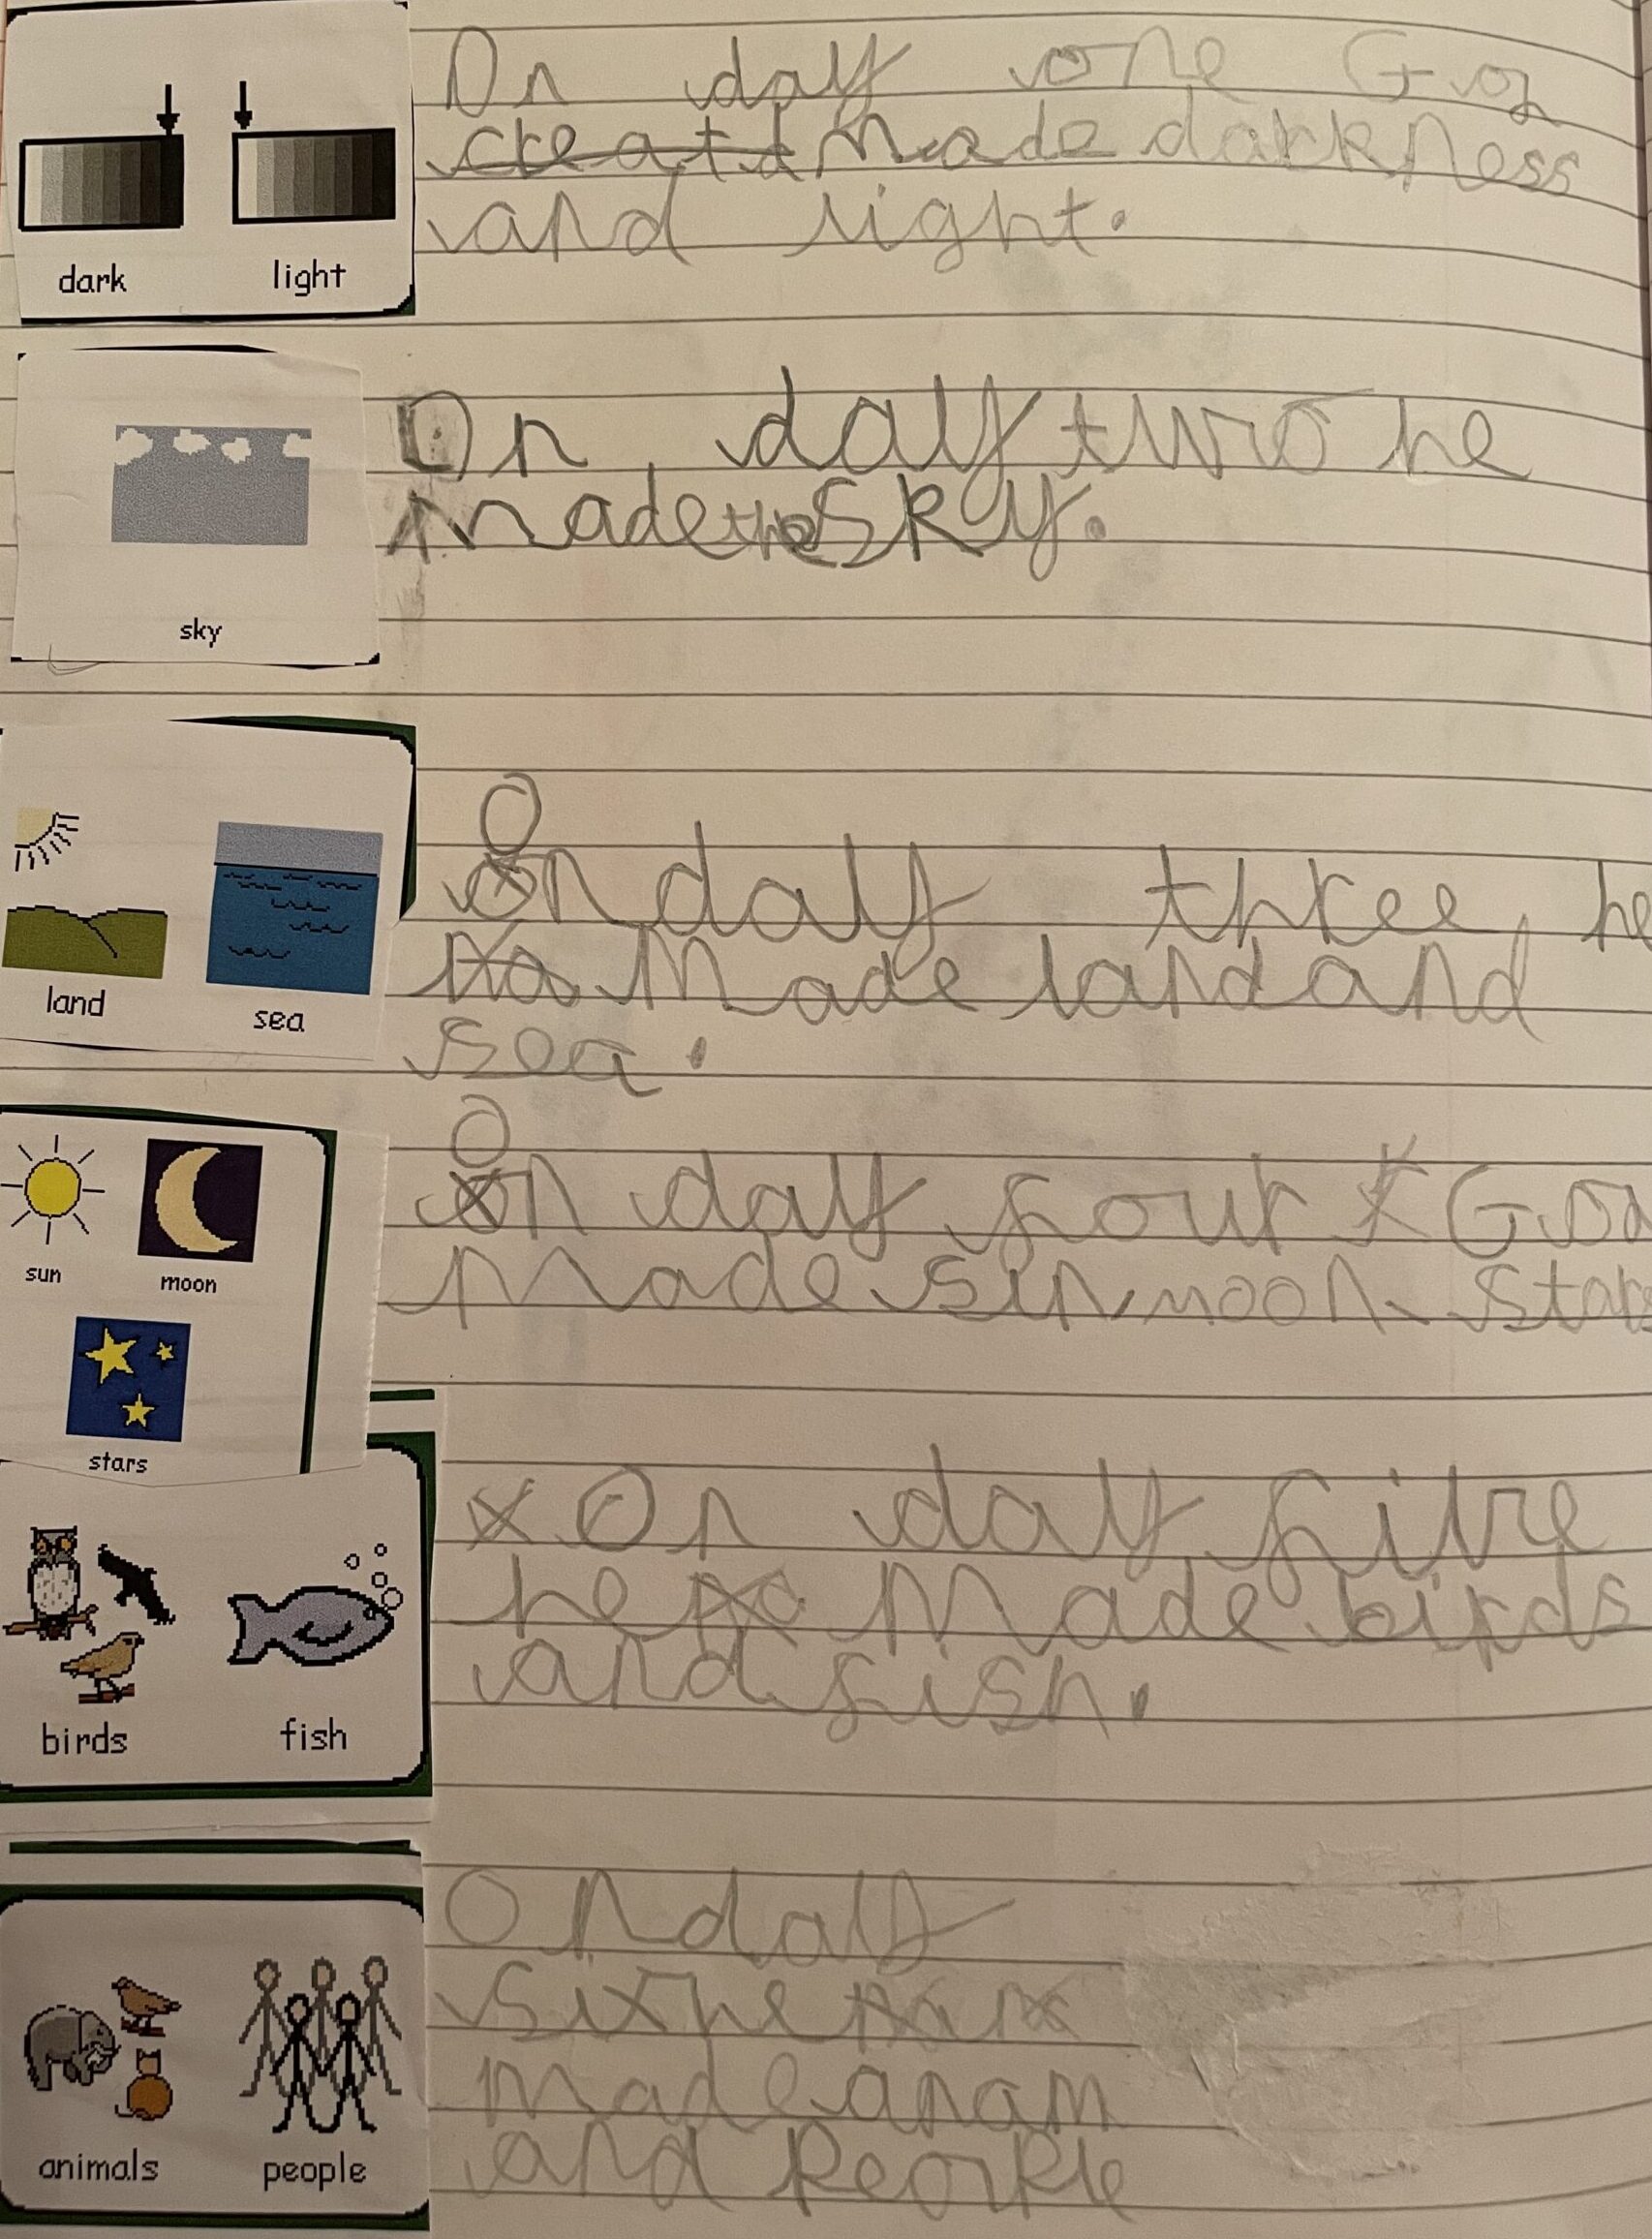 dark light
On day one God
creatd made darkness
and light.
sky
On day two he
made the sky.
land sea
On day three he
ma made land and
sea.
sun moon
stars
On day four God
made sun, moon stars
birds fish
On day five
he ma made birds
and fish.
animals people
On day
six he
made anam
and people